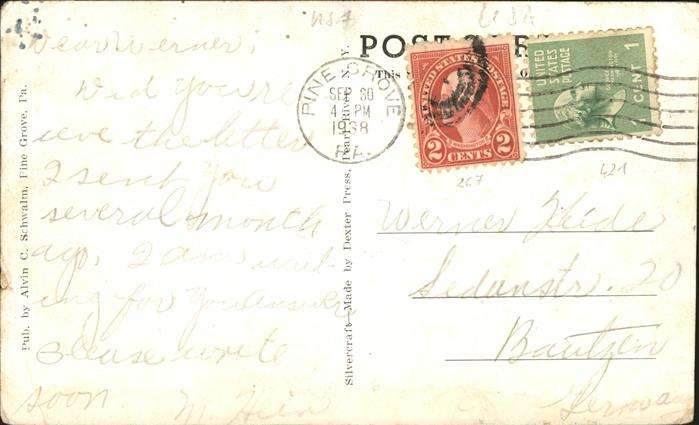 USA
USA
POST CARD
This
Dear Werner;
Did you re
ieve the letter
I sent you
several month
ago. I am wait-
ing for your answer
Please write
soon
M. Hein
Pub. by Alvin C. Schwalm, Pine Grove, Pa.
Silvercraft—Made by Dexter Press, Pearl River, N. Y.
PINE GROVE
SEP 30
4 PM
1938
PA.
UNITED STATES POSTAGE
WASHINGTON
2 CENTS 2
UNITED
STATES
POSTAGE
1 CENT
267
421
Werner
Sedanstr. 20
Bautzen
Germany